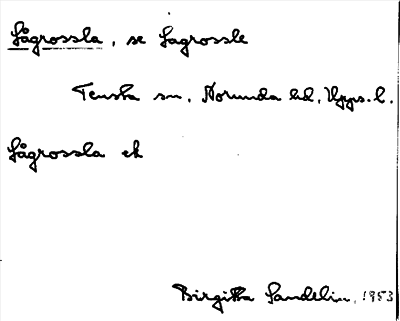 Sågrossla, se Sagrossle
Tensta sn, Norunda hd, Upps. l.
Sågrossla ek
Birgitta Sandelin, 1953